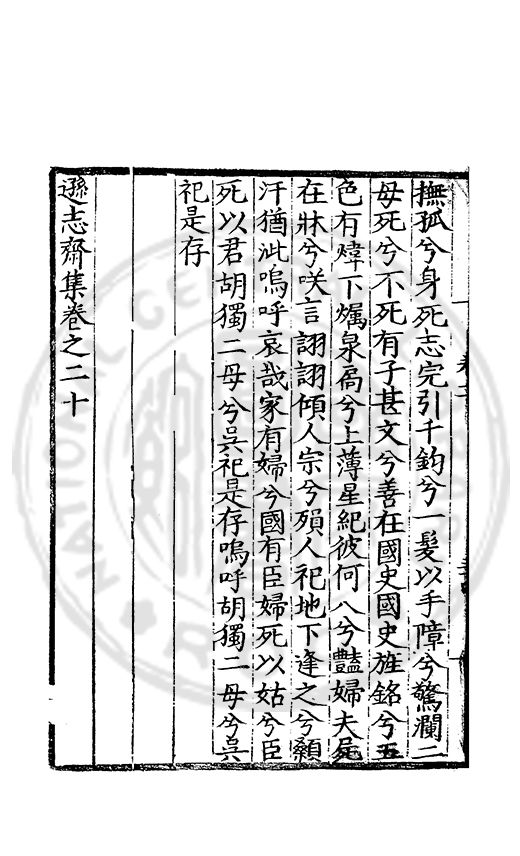 撫孤兮身死志完引千鈞兮一髮以手障兮驚瀾二
母死兮不死有子甚文兮善在國史國史旌銘兮五
色有煒下爥泉扄兮上薄星紀彼何人兮豔婦夫屍
在牀兮咲言詡詡傾人宗兮殞人祀地下逢之兮顙
汗猶泚嗚呼哀哉家有婦兮國有臣婦死以姑兮臣
死以君胡獨二母兮吳祀是存嗚呼胡獨二母兮吳
祀是存
遜志齋集卷之二十